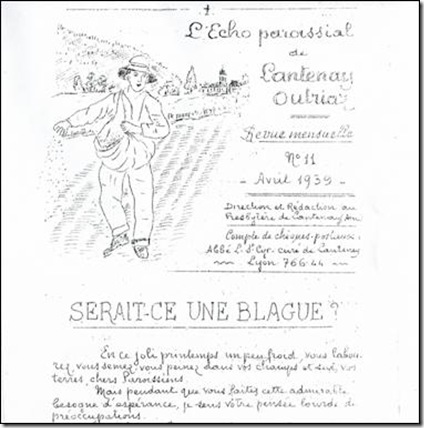 L'Echo paroissial
de
Lantenay
Outriaz
Revue mensuelle
N° 11
- Avril 1939 -
Direction et Rédaction au
Presbytère de Lantenay Ain
Compte de chèques-postaux:
Abbé L. St Cyr. curé de Lantenay
Lyon 766.44
SERAIT-CE UNE BLAGUE ?
En ce joli printemps un peu froid, vous labou-
rez, vous semez, vous peinez dans vos champs et sur vos
terres, chers Paroissiens.
Mais pendant que vous faites cette admirable
besogne d'espérance, je sens votre pensée lourde de
préoccupations.